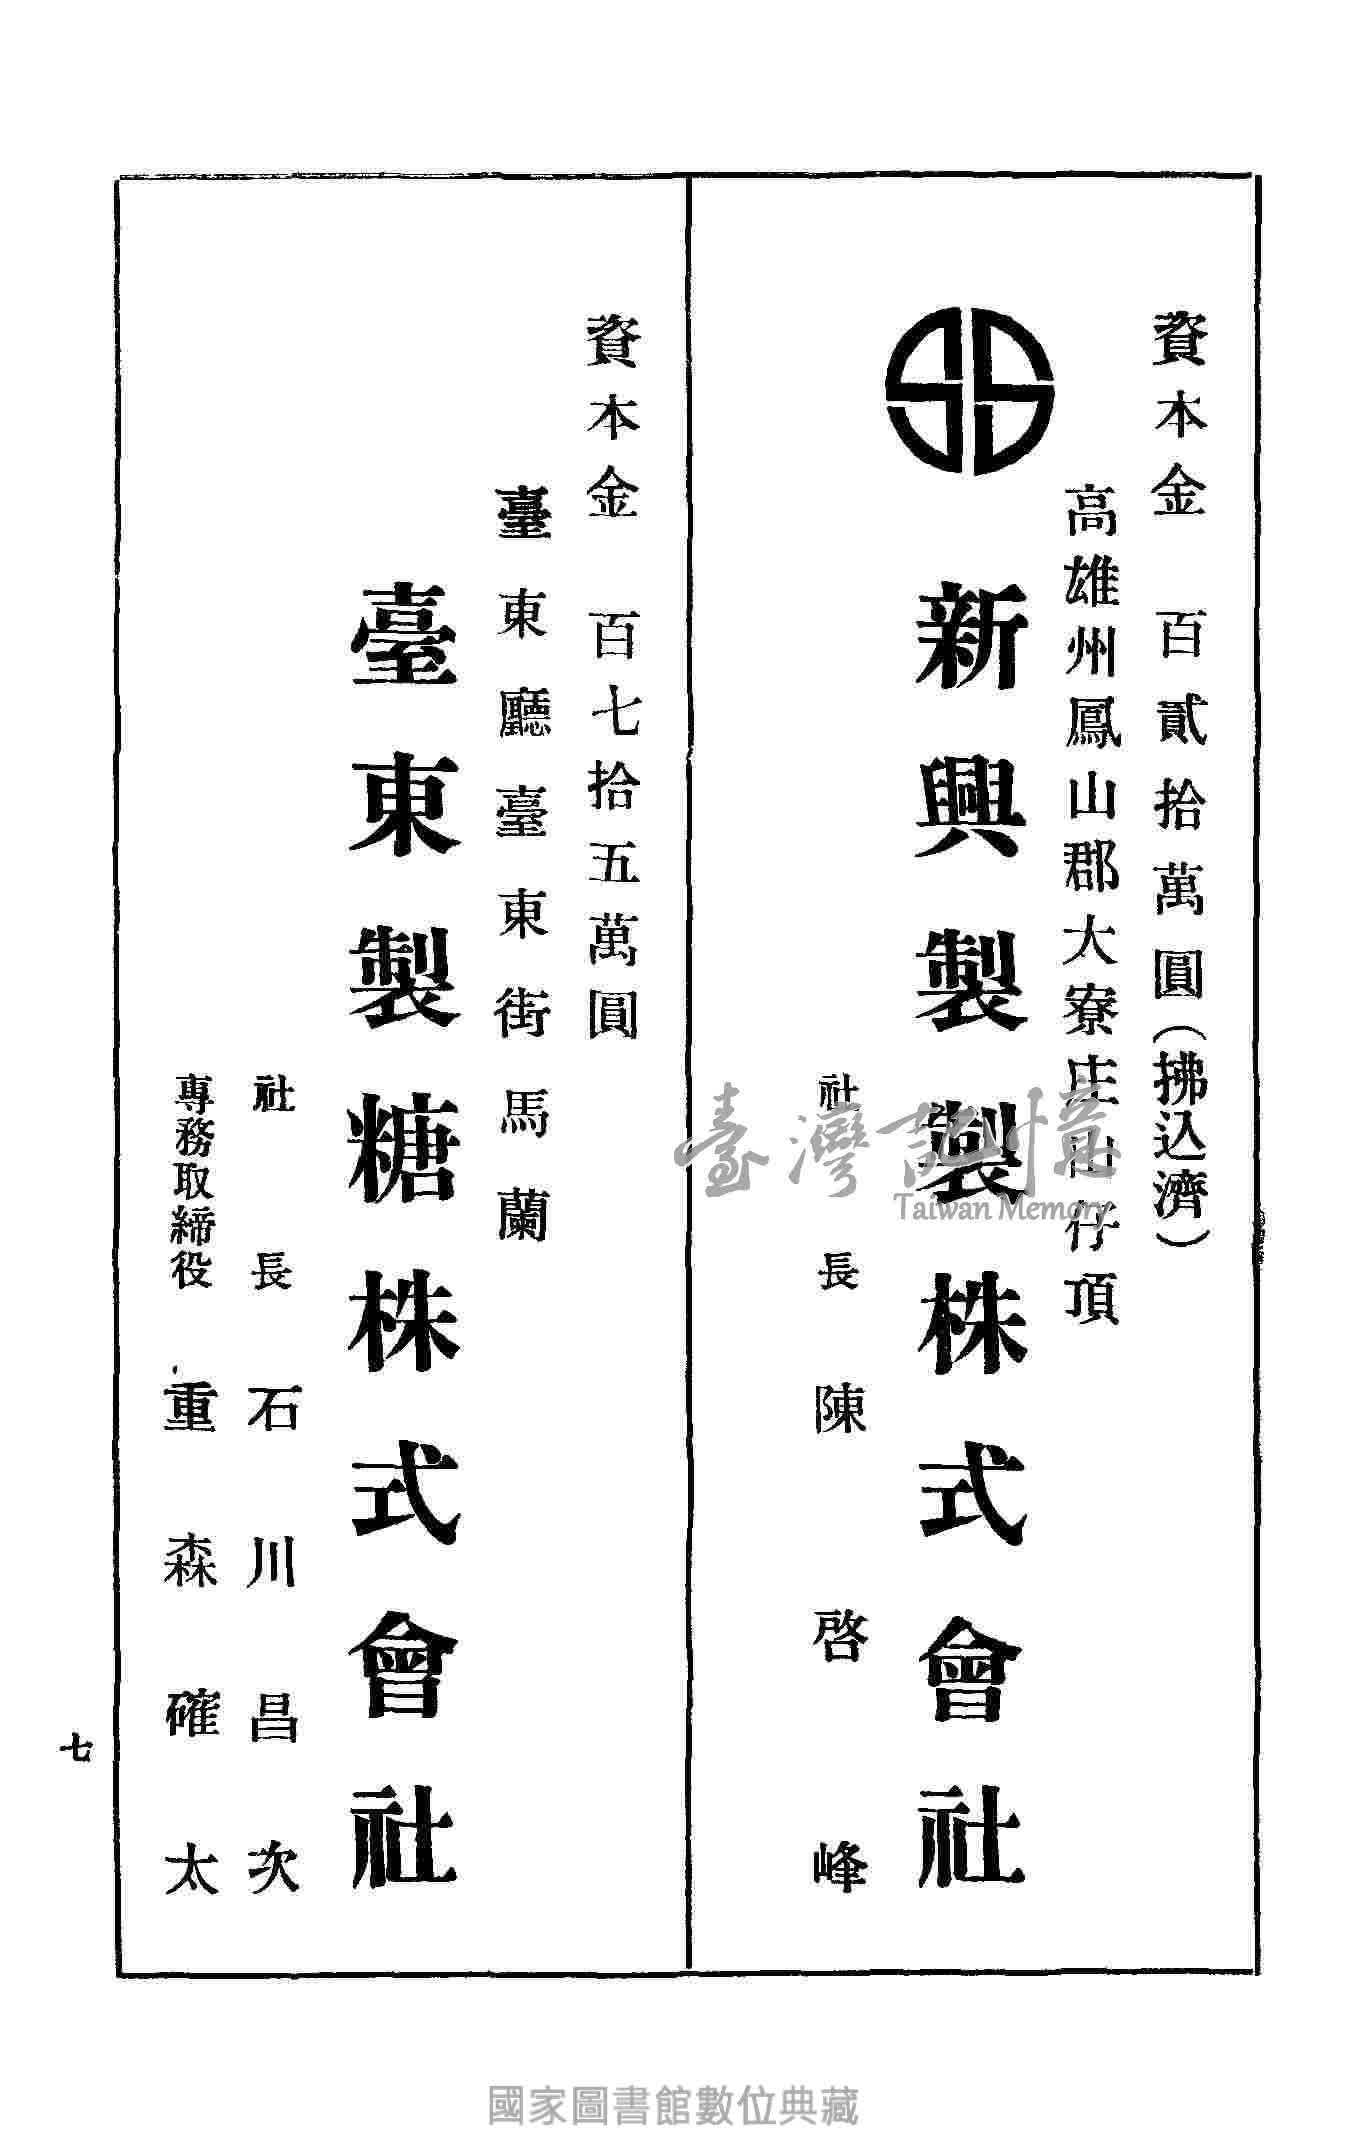 資本金 百貳拾萬圓(拂込濟)
高雄州鳳山郡大寮庄山仔頂
新興製製株式會社
社長 陳啓峰
資本金 百七拾五萬圓
臺東廳臺東街馬蘭
臺東製糖株式會社
社長 石川昌次
專務取締役 重森確太
七
臺灣記憶
Taiwan Memory
國家圖書館數位典藏